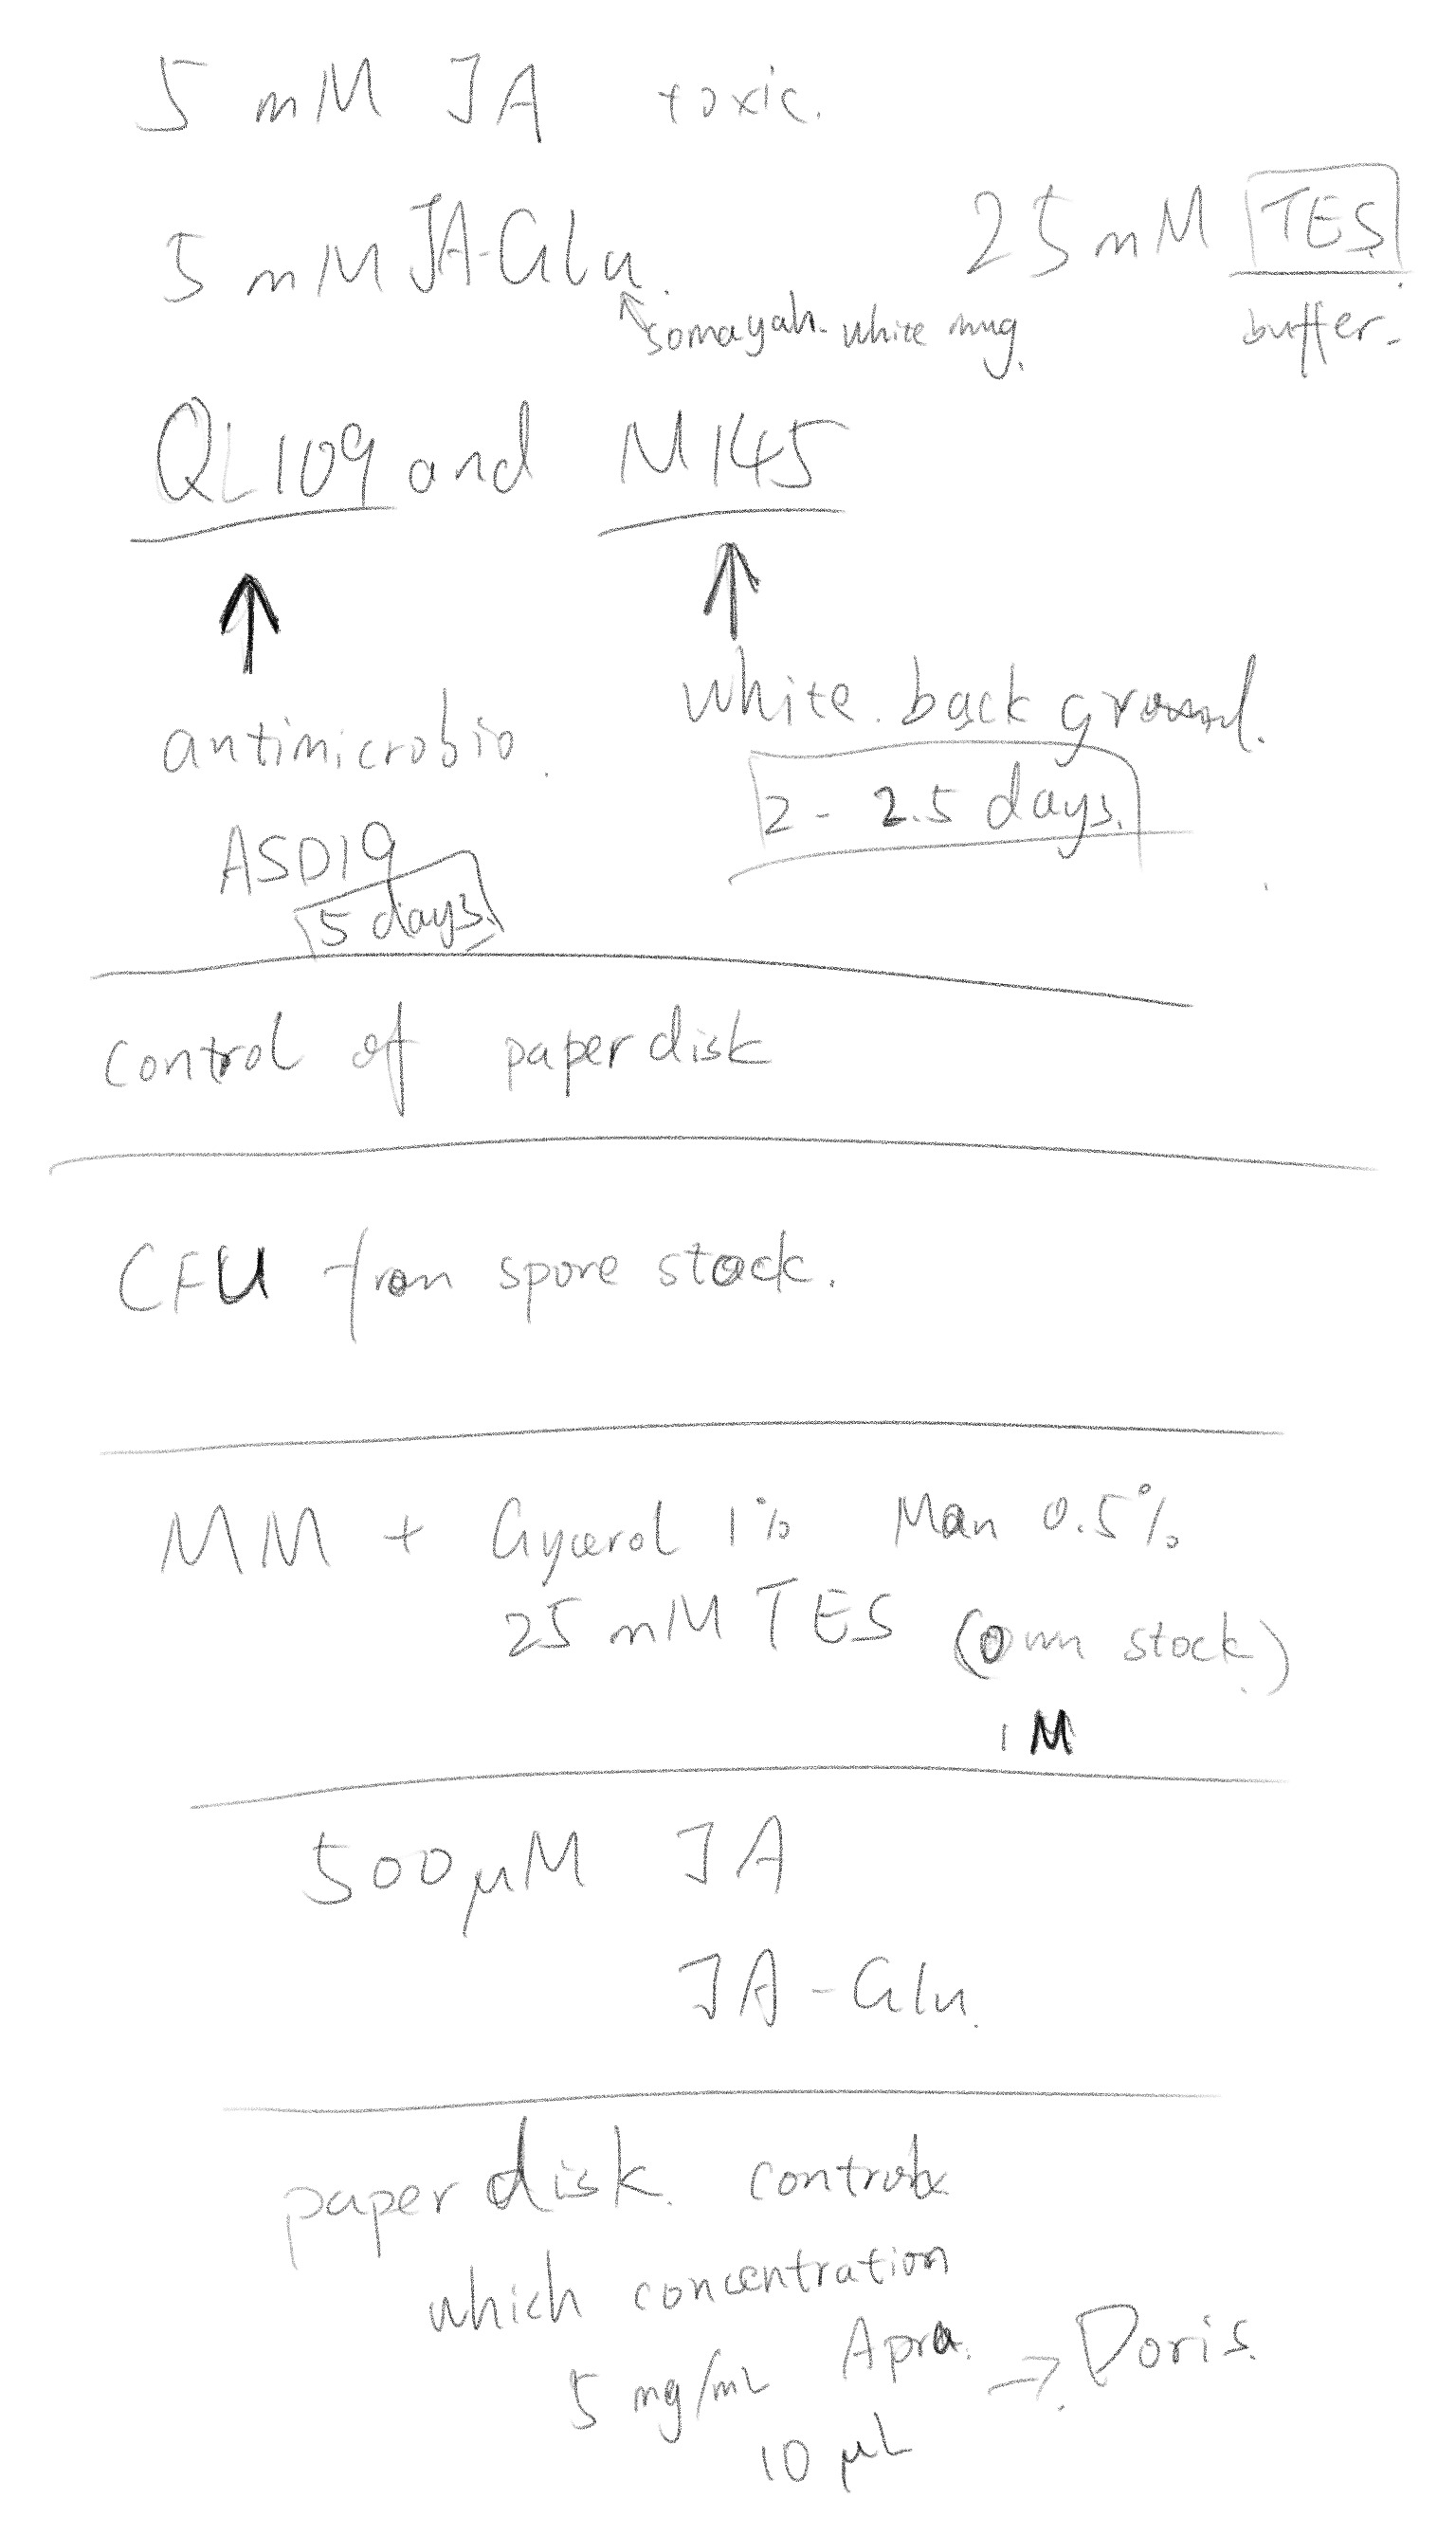 5 mM JA toxic.
5 mM JA-Glu.
25 mM TES.
buffer.
somayah. white mug.
QL109 and M145
antimicrobio.
white. back ground.
2 - 2.5 days.
ASD19
5 days.
control of paper disk
CFU from spore stock.
MM + Glycerol 1% Man 0.5%
25 mM TES (own stock.)
1 M
500 µM JA
JA-Glu.
paper disk. control
which concentration
Apra. → Doris.
5 mg/mL
10 µL